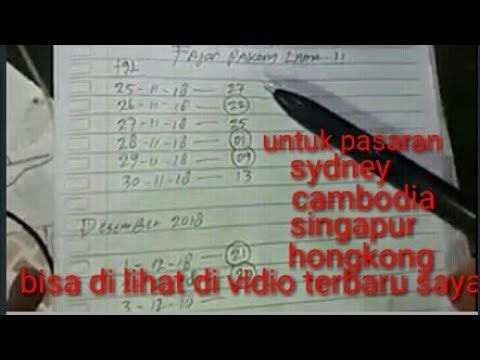 Tgl
25-11-18 — 27
26-11-18 — 22
27-11-18 — 25
28-11-18 — 01
29-11-18 — 09
30-11-18 — 13
Desember 2018
1-12-18 — 21
3-12-18
untuk pasaran
sydney
cambodia
singapur
hongkong
bisa di lihat di vidio terbaru saya